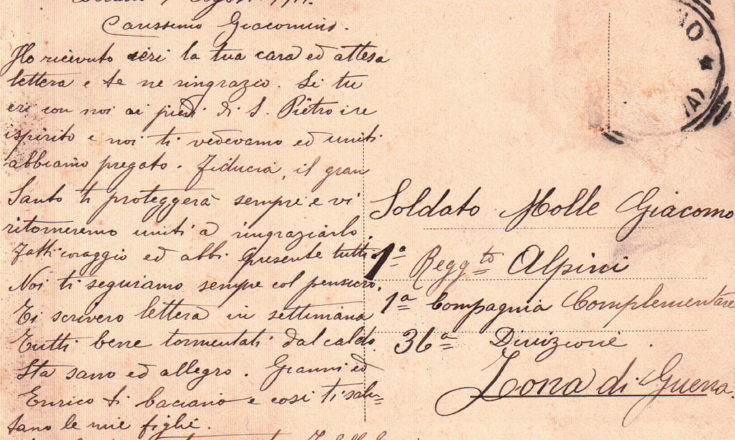 Carissimo Giacomino.
Ho ricevuto ieri la tua cara ed attesa
lettera e te ne ringrazio. Si tu
eri con noi ai piedi di S. Pietro in
ispirito e noi ti vedevamo ed uniti
abbiamo pregato. Fiducia, il gran
Santo ti proteggerà sempre e vi
ritorneremo uniti a ringraziarlo.
Fatti coraggio ed abbi presente tutti
Noi ti seguiamo sempre col pensiero.
Ti scriverò lettera in settimana
Tutti bene tormentati dal caldo
Sta sano ed allegro. Gianni ed
Enrico ti baciano e così ti salu=
tano le mie figlie.
Soldato Molle Giacomo
1ª Reggto Alpini
1ª Compagnia Complementare
36ª Divizione.
Zona di Guerra.